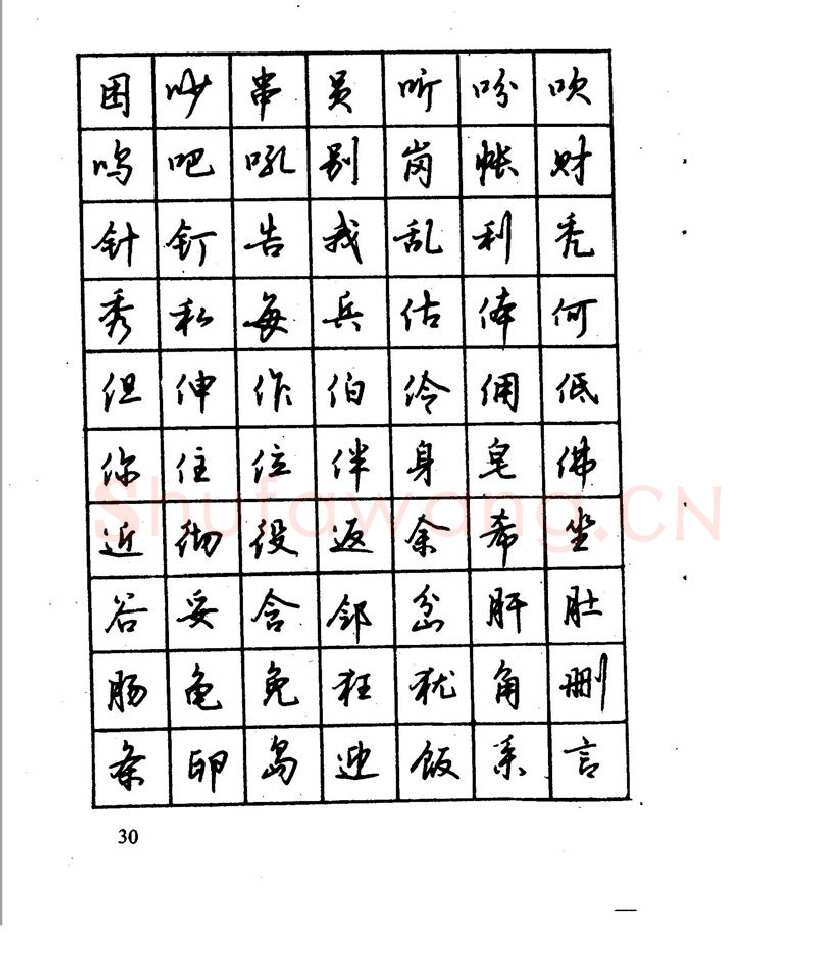 困吵串员听吩吹
呜吧吼别岗帐财
针钉告我乱利秃
秀私每兵估体何
但伸作伯伶佣低
你住位伴身皂佛
近彻役返余希坐
谷妥含邻岔肝肚
肠龟免狂犹角删
条卵岛迎饭系言
Shufawang.CN
30